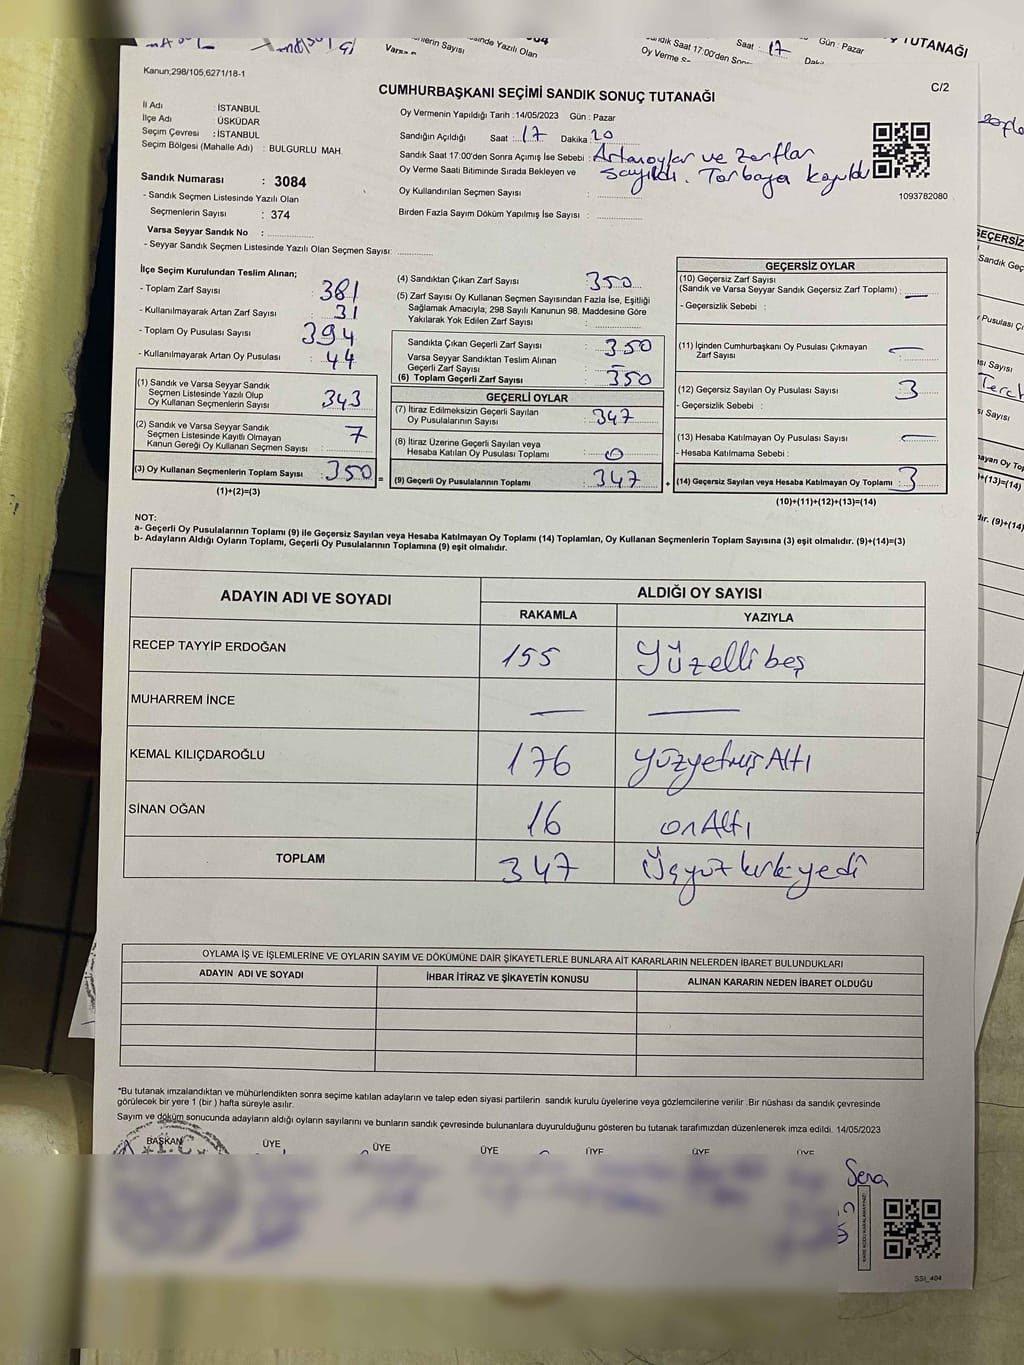 Kanun;298/105,6271/18-1
C/2
CUMHURBAŞKANI SEÇİMİ SANDIK SONUÇ TUTANAĞI
İl Adı : İSTANBUL
İlçe Adı : ÜSKÜDAR
Seçim Çevresi : İSTANBUL
Seçim Bölgesi (Mahalle Adı) : BULGURLU MAH.
Sandık Numarası : 3084
- Sandık Seçmen Listesinde Yazılı Olan
Seçmenlerin Sayısı : 374
Varsa Seyyar Sandık No :
- Seyyar Sandık Seçmen Listesinde Yazılı Olan Seçmen Sayısı:
Oy Vermenin Yapıldığı Tarih :14/05/2023 Gün : Pazar
Sandığın Açıldığı Saat : 17 Dakika : 20
Sandık Saat 17:00'den Sonra Açımış İse Sebebi : Artan oylar ve zarflar
Oy Verme Saati Bitiminde Sırada Bekleyen ve sayıldı. Torbaya koyuldu
Oy Kullandırılan Seçmen Sayısı :
Birden Fazla Sayım Döküm Yapılmış İse Sayısı :
1093782080
İlçe Seçim Kurulundan Teslim Alınan;
- Toplam Zarf Sayısı : 381
- Kullanılmayarak Artan Zarf Sayısı : 31
- Toplam Oy Pusulası Sayısı : 394
- Kullanılmayarak Artan Oy Pusulası : 44
(1) Sandık ve Varsa Seyyar Sandık
Seçmen Listesinde Yazılı Olup
Oy Kullanan Seçmenlerin Sayısı : 343
(2) Sandık ve Varsa Seyyar Sandık
Seçmen Listesinde Kayıtlı Olmayan
Kanun Gereği Oy Kullanan Seçmen Sayısı : 7
(3) Oy Kullanan Seçmenlerin Toplam Sayısı : 350
(1)+(2)=(3)
(4) Sandıktan Çıkan Zarf Sayısı : 350
(5) Zarf Sayısı Oy Kullanan Seçmen Sayısından Fazla İse, Eşitliği
Sağlamak Amacıyla; 298 Sayılı Kanunun 98. Maddesine Göre
Yakılarak Yok Edilen Zarf Sayısı :
Sandıkta Çıkan Geçerli Zarf Sayısı : 350
Varsa Seyyar Sandıktan Teslim Alınan
Geçerli Zarf Sayısı : —
(6) Toplam Geçerli Zarf Sayısı : 350
GEÇERLİ OYLAR
(7) İtiraz Edilmeksizin Geçerli Sayılan
Oy Pusulalarının Sayısı : 347
(8) İtiraz Üzerine Geçerli Sayılan veya
Hesaba Katılan Oy Pusulası Toplamı : 0
(9) Geçerli Oy Pusulalarının Toplamı : 347
GEÇERSİZ OYLAR
(10) Geçersiz Zarf Sayısı
(Sandık ve Varsa Seyyar Sandık Geçersiz Zarf Toplamı) : —
- Geçersizlik Sebebi :
(11) İçinden Cumhurbaşkanı Oy Pusulası Çıkmayan
Zarf Sayısı : —
(12) Geçersiz Sayılan Oy Pusulası Sayısı : 3
- Geçersizlik Sebebi :
(13) Hesaba Katılmayan Oy Pusulası Sayısı : —
- Hesaba Katılmama Sebebi :
(14) Geçersiz Sayılan veya Hesaba Katılmayan Oy Toplamı : 3
(10)+(11)+(12)+(13)=(14)
NOT:
a- Geçerli Oy Pusulalarının Toplamı (9) ile Geçersiz Sayılan veya Hesaba Katılmayan Oy Toplamı (14) Toplamları, Oy Kullanan Seçmenlerin Toplam Sayısına (3) eşit olmalıdır. (9)+(14)=(3)
b- Adayların Aldığı Oyların Toplamı, Geçerli Oy Pusulalarının Toplamına (9) eşit olmalıdır.
ADAYIN ADI VE SOYADI
ALDIĞI OY SAYISI
RAKAMLA YAZIYLA
RECEP TAYYİP ERDOĞAN 155 Yüzelli beş
MUHARREM İNCE — —
KEMAL KILIÇDAROĞLU 176 yüzyetmiş Altı
SİNAN OĞAN 16 on Altı
TOPLAM 347 Üçyüz kırk yedi
OYLAMA İŞ VE İŞLEMLERİNE VE OYLARIN SAYIM VE DÖKÜMÜNE DAİR ŞİKAYETLERLE BUNLARA AİT KARARLARIN NELERDEN İBARET BULUNDUKLARI
ADAYIN ADI VE SOYADI İHBAR İTİRAZ VE ŞİKAYETİN KONUSU ALINAN KARARIN NEDEN İBARET OLDUĞU
*Bu tutanak imzalandıktan ve mühürlendikten sonra seçime katılan adayların ve talep eden siyasi partilerin sandık kurulu üyelerine veya gözlemcilerine verilir .Bir nüshası da sandık çevresinde
görülecek bir yere 1 (bir ) hafta süreyle asılır.
Sayım ve döküm sonucunda adayların aldığı oyların sayılarını ve bunların sandık çevresinde bulunanlara duyurulduğunu gösteren bu tutanak tarafımızdan düzenlenerek imza edildi. 14/05/2023
BAŞKAN ÜYE ÜYE ÜYE ÜYE ÜYE ÜYE
Sena
SSI_404